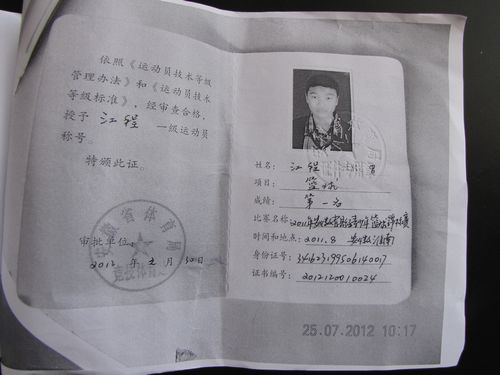 依照《运动员技术等级
管理办法》和《运动员技术
等级标准》，经审查合格，
授予 江程 一级运动员
称号。
特颁此证。
安徽省体育局
审批单位：
2012 年 月 30日
姓名： 江程 性别 男
项目： 篮球
成绩： 第一名
比赛名称：2011年安徽省 青少年篮球锦标赛
时间和地点：2011.8 安徽 淮南
身份证号：
证书编号：2012120010024
25.07.2012 10:17